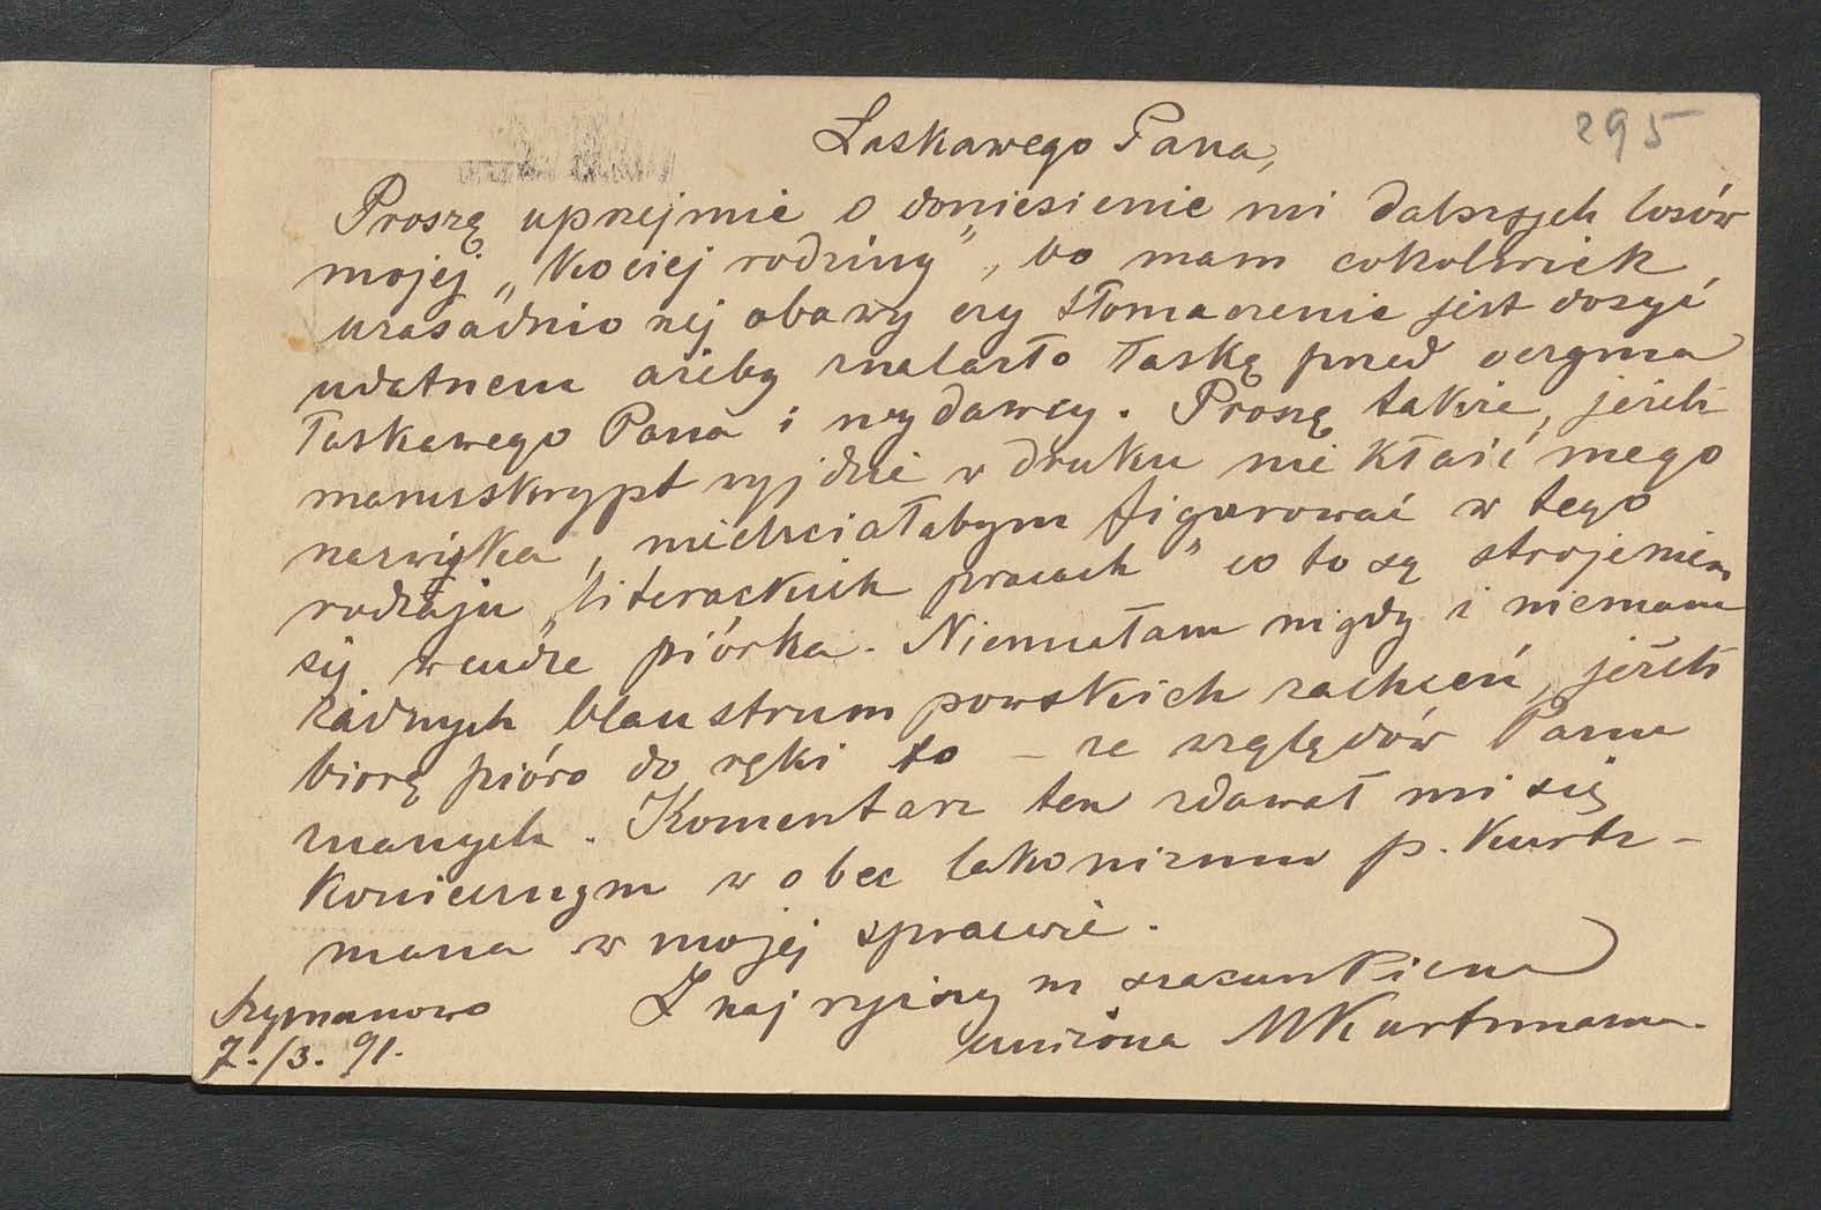 Łaskawego Pana,
295
Proszę uprzejmie o doniesienie mi dalszych losów
mojej „Kociej rodziny”, bo mam cokolwiek
uzasadnionej obawy czy tłomaczenie jest dosyć
udatnem ażeby znalazło łaskę przed oczyma
łaskawego Pana i wydawcy. Proszę także, jeżeli
manuskrypt wyjdzie w druku nie kłaść mego
nazwiska, niechciałabym figurować w tego
rodzaju „literackich pracach” co to są strojeniem
się w cudze piórka. Niemiałam nigdy i niemam
żadnych blaustrumpowskich zachceń, jeżeli
biorę pióro do ręki to – ze względów Panu
znanych. Komentarz ten zdawał mi się
koniecznym wobec lakonizmu p. Kurtz-
mana w mojej sprawie.
Z najwyższym szacunkiem
uniżona MKurtzmann.
Szymanowo
7./3. 91.